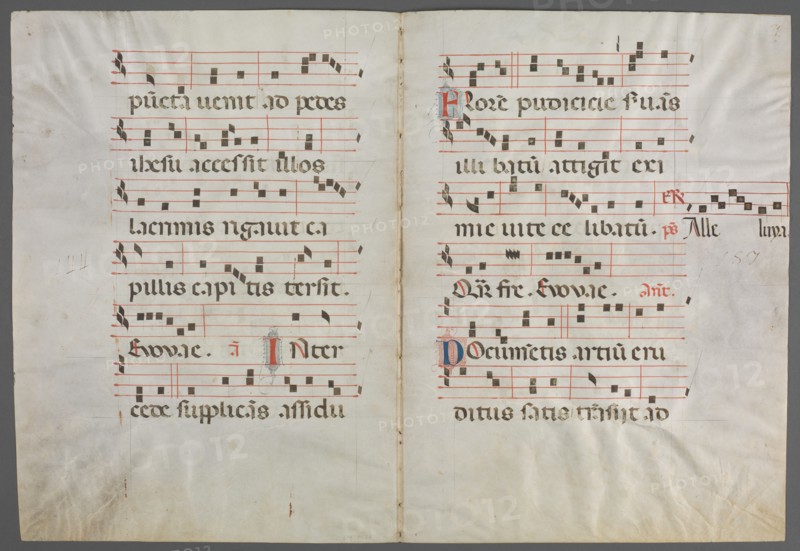 pūcta uenit ad pedes
ihesu accessit illos
lacrimis rigauit ca
pillis capi tis tersit.
Evovae. a̅ INter
cede supplicās assidu
Flore pudicicie suās
illi batū attigit exi
mie uite ee libatū. ps Alle luya
Evovae. Ant.
DOcumētis artiū eru
ditus satis trāsijt ad